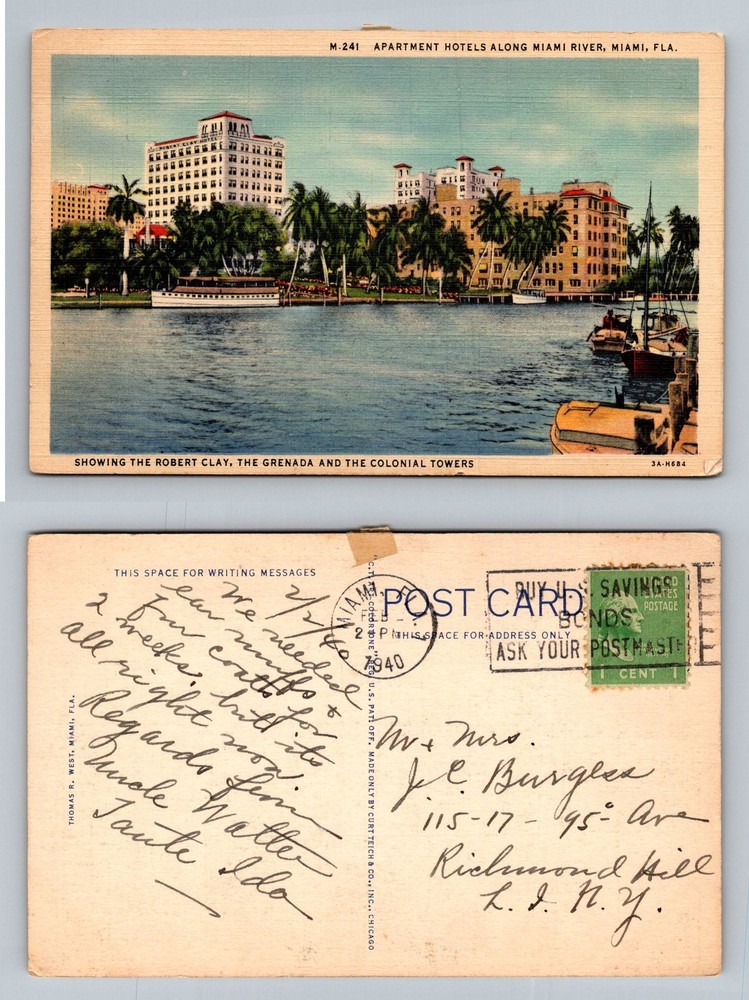 M-241 APARTMENT HOTELS ALONG MIAMI RIVER, MIAMI, FLA.
ROBERT CLAY HOTEL
SHOWING THE ROBERT CLAY, THE GRENADA AND THE COLONIAL TOWERS
3A-H684
THIS SPACE FOR WRITING MESSAGES
2/2/40
We needed
ear muffs &
fur coats for
2 weeks. but its
all right now
Regards from
Uncle Walter
Tante Ida
THOMAS R. WEST, MIAMI, FLA.
"C.T. COLORTONE" REG. U.S. PAT. OFF. MADE ONLY BY CURT TEICH & CO., INC., CHICAGO
MIAMI
FEB
PM
1940
POST CARD
THIS SPACE FOR ADDRESS ONLY
BUY U.S. SAVINGS
BONDS
ASK YOUR POSTMASTE
UNITED
STATES
POSTAGE
1 CENT 1
Mr & Mrs.
J C Burgess
115-17- 95- Ave
Richmond Hill
L. I. N. Y.